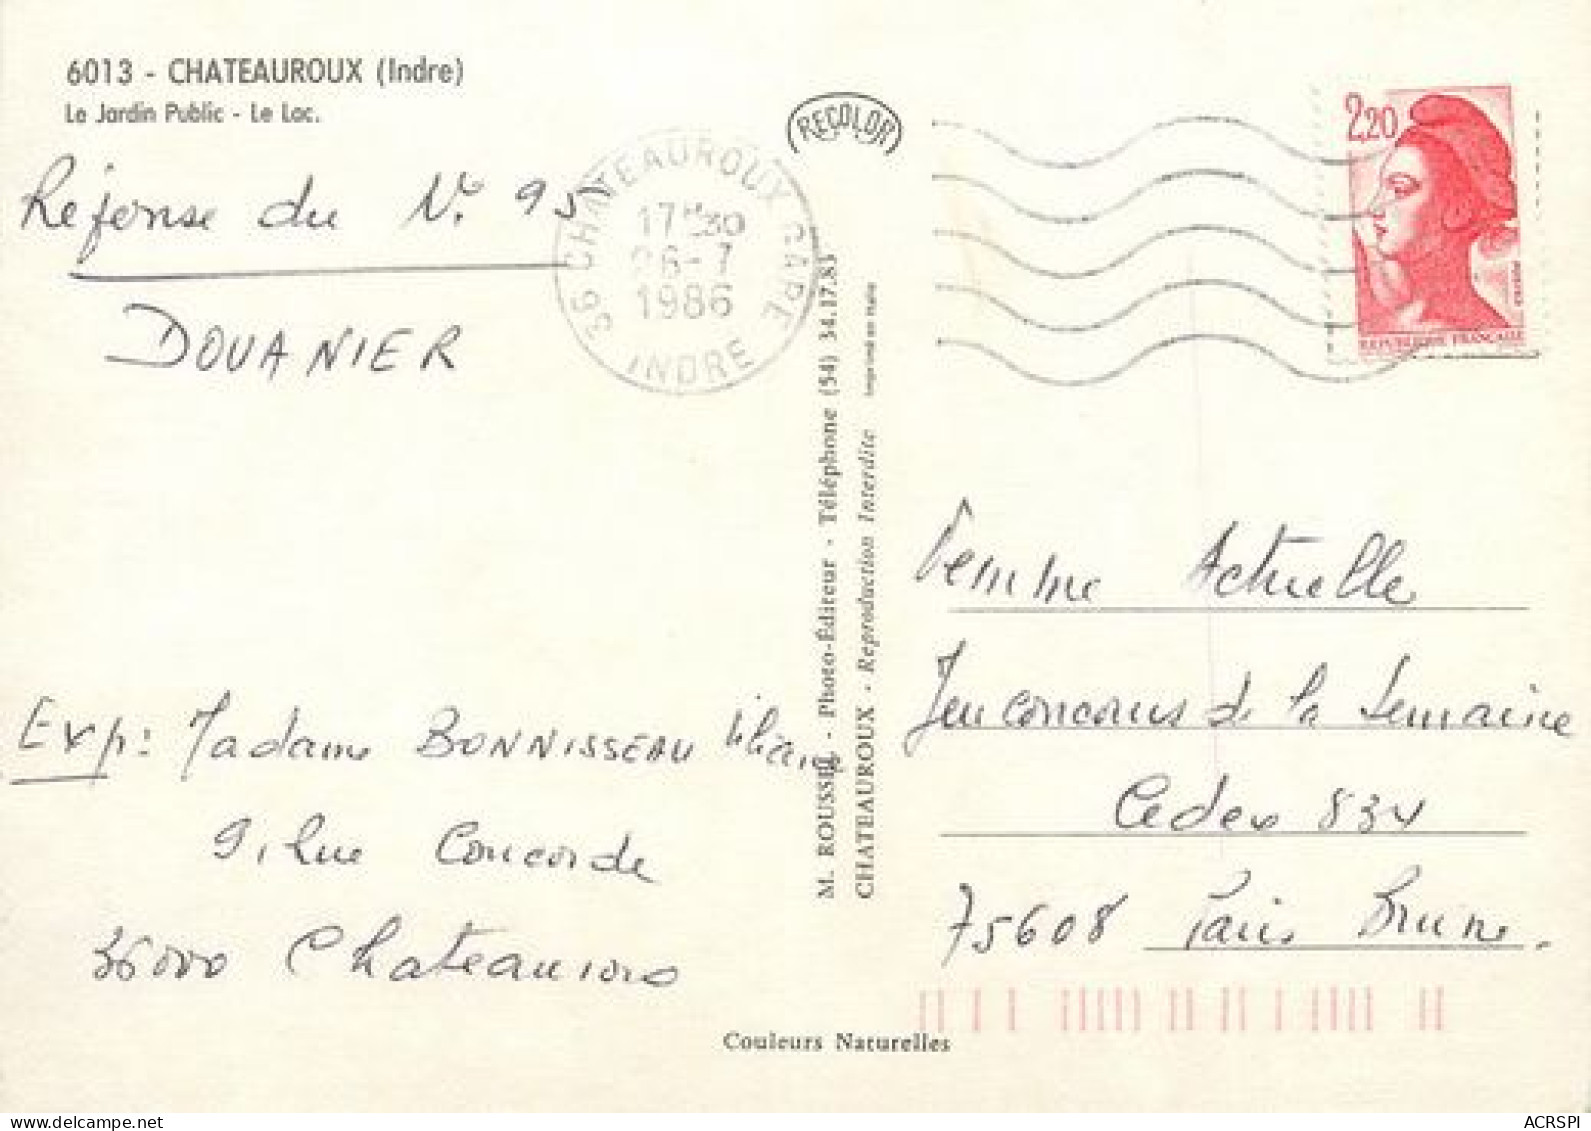 6013 - CHATEAUROUX (Indre)
Le Jardin Public - Le Lac.
Réponse du N° 95
DOUANIER
36 CHATEAUROUX GARE
17H30
26-7
1986
INDRE
RECOLOR
2,20
REPUBLIQUE FRANÇAISE
M. ROUSSEL - Photo-Éditeur - Téléphone (54) 34.17.83
CHATEAUROUX - Reproduction Interdite
Imprimé en Italie
Femme Actuelle
Jeu concours de la Semaine
Cedex 834
75608 Paris Brune.
Exp: Madame BONNISSEAU Liliane
9, Rue Concorde
36000 Chateauroux
Couleurs Naturelles
ACRSPI